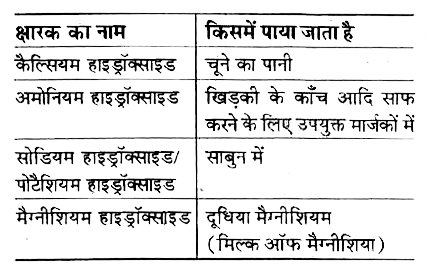 क्षारक का नाम किसमें पाया जाता है
कैल्सियम हाइड्रॉक्साइड चूने का पानी
अमोनियम हाइड्रॉक्साइड खिड़की के काँच आदि साफ
करने के लिए उपयुक्त मार्जकों में
सोडियम हाइड्रॉक्साइड/ साबुन में
पोटैशियम हाइड्रॉक्साइड
मैग्नीशियम हाइड्रॉक्साइड दूधिया मैग्नीशियम
(मिल्क ऑफ मैग्नीशिया)